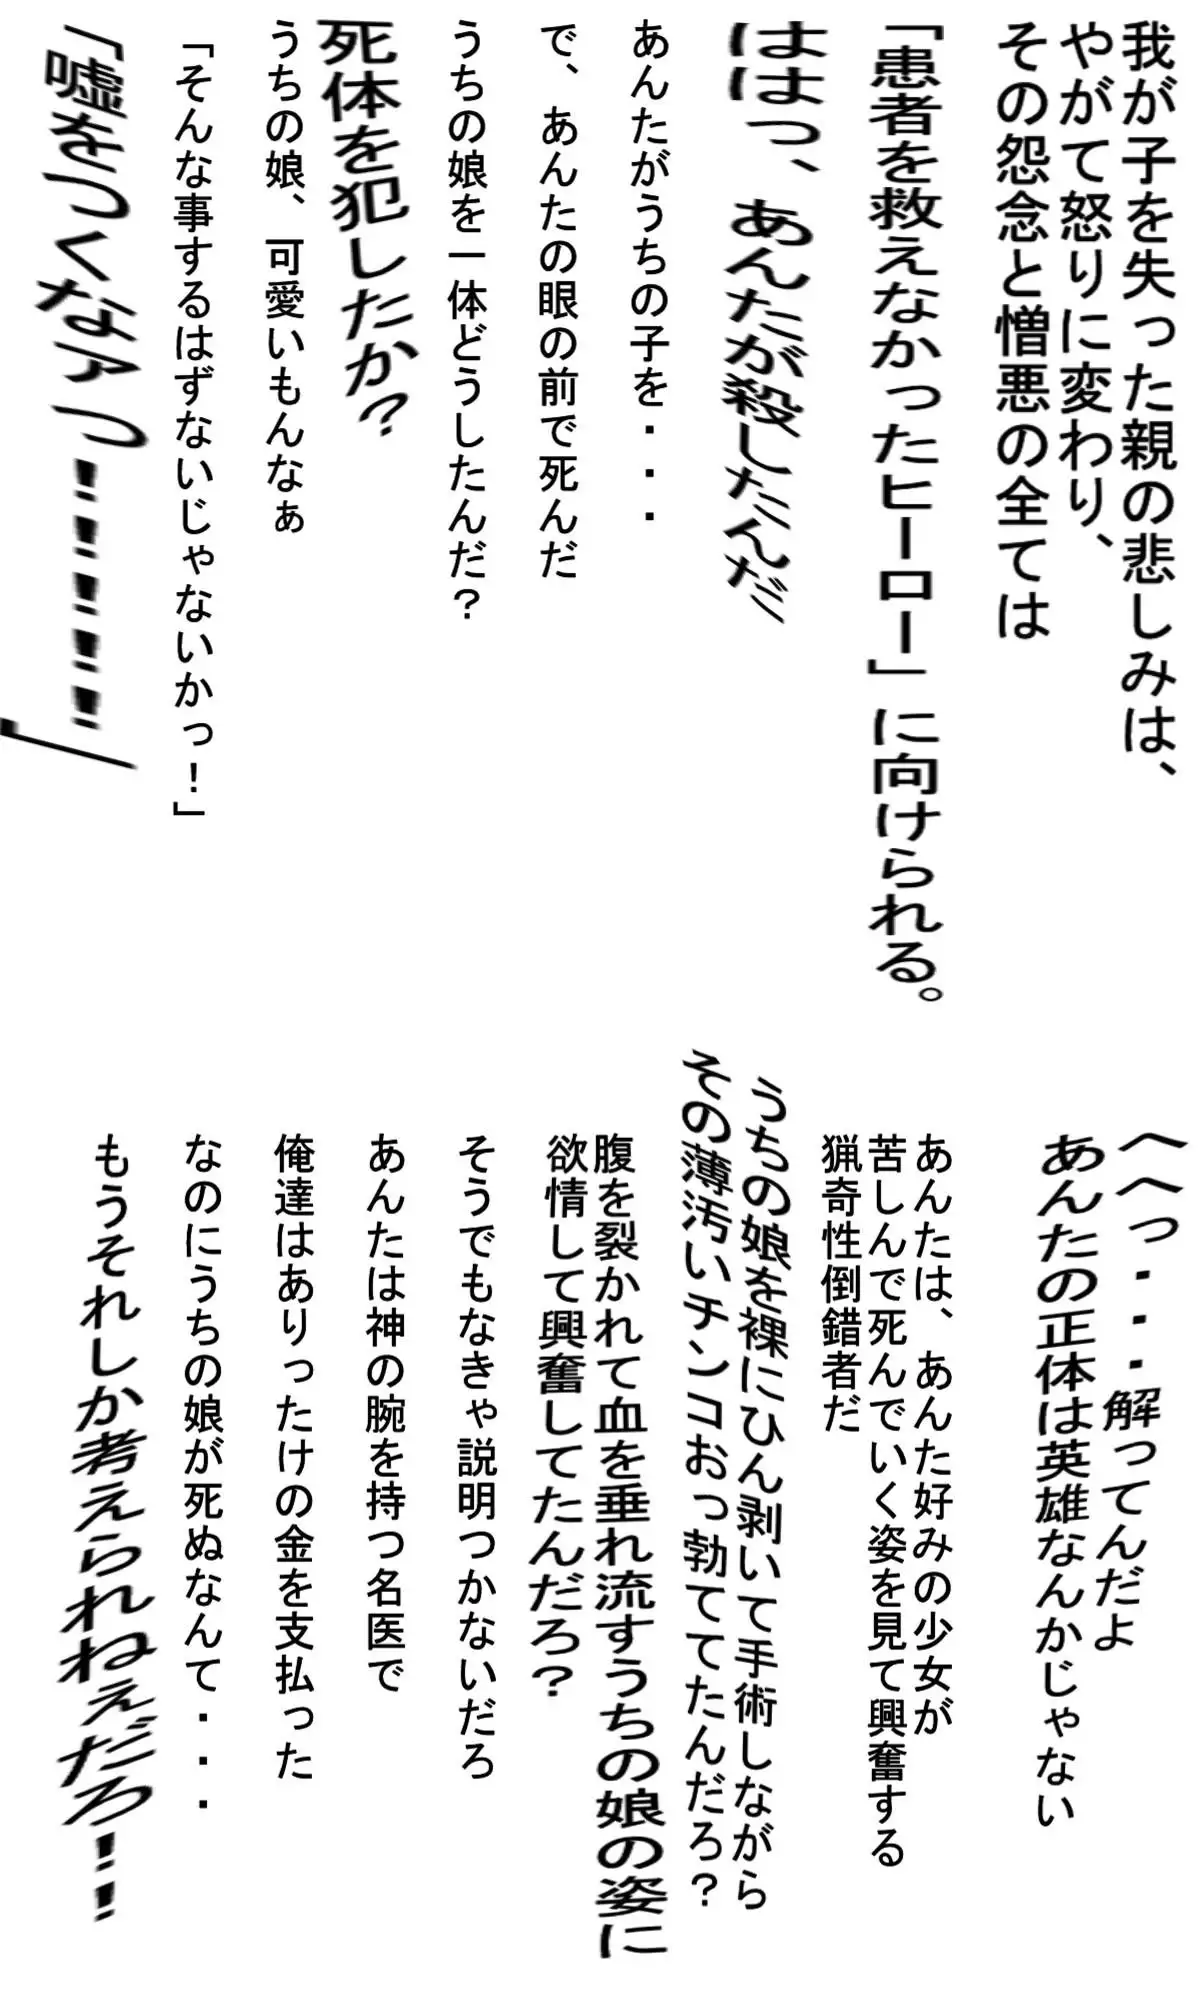 我が子を失った親の悲しみは、
やがて怒りに変わり、
その怨念と憎悪の全ては
「患者を救えなかったヒーロー」に向けられる。
ははっ、あんたが殺したんだ
あんたがうちの子を・・・
で、あんたの眼の前で死んだ
うちの娘を一体どうしたんだ？
死体を犯したか？
うちの娘、可愛いもんなぁ
「そんな事するはずないじゃないかっ！」
「嘘をつくなァっ！！！！！！」
へへっ・・・解ってんだよ
あんたの正体は英雄なんかじゃない
あんたは、あんた好みの少女が
苦しんで死んでいく姿を見て興奮する
猟奇性倒錯者だ
うちの娘を裸にひん剥いて手術しながら
その薄汚いチンコおっ勃ててたんだろ？
腹を裂かれて血を垂れ流すうちの娘の姿に
欲情して興奮してたんだろ？
そうでもなきゃ説明つかないだろ
あんたは神の腕を持つ名医で
俺達はありったけの金を支払った
なのにうちの娘が死ぬなんて・・・
もうそれしか考えられねぇだろ！！